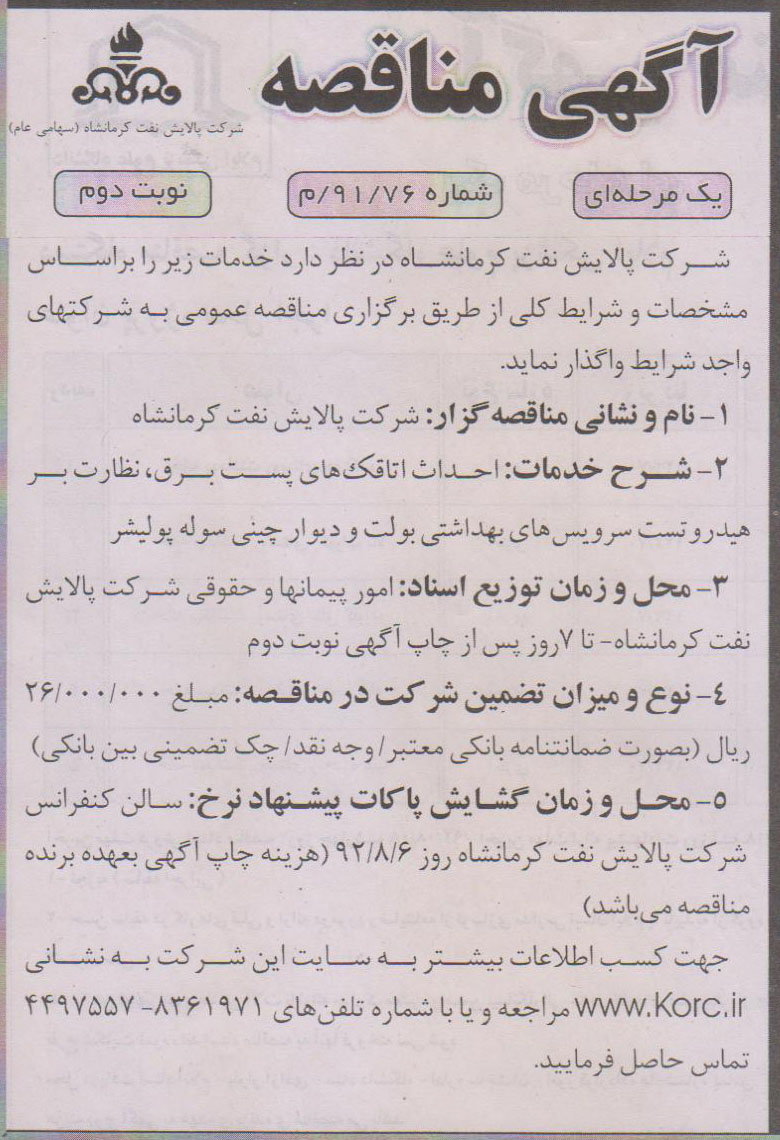 آگهی مناقصه
شرکت پالایش نفت کرمانشاه (سهامی عام)
یک مرحله‌ای
شماره ۹۱/۷۶/م
نوبت دوم
شرکت پالایش نفت کرمانشاه در نظر دارد خدمات زیر را براساس
مشخصات و شرایط کلی از طریق برگزاری مناقصه عمومی به شرکتهای
واجد شرایط واگذار نماید.
۱- نام و نشانی مناقصه گزار: شرکت پالایش نفت کرمانشاه
۲- شرح خدمات: احداث اتاقک‌های پست برق، نظارت بر
هیدروتست سرویس‌های بهداشتی بولت و دیوار چینی سوله پولیشر
۳- محل و زمان توزیع اسناد: امور پیمانها و حقوقی شرکت پالایش
نفت کرمانشاه- تا ۷روز پس از چاپ آگهی نوبت دوم
۴- نوع و میزان تضمین شرکت در مناقصه: مبلغ ۲۶/۰۰۰/۰۰۰
ریال (بصورت ضمانتنامه بانکی معتبر/ وجه نقد/ چک تضمینی بین بانکی)
۵- محل و زمان گشایش پاکات پیشنهاد نرخ: سالن کنفرانس
شرکت پالایش نفت کرمانشاه روز ۹۲/۸/۶ (هزینه چاپ آگهی بعهده برنده
مناقصه می‌باشد)
جهت کسب اطلاعات بیشتر به سایت این شرکت به نشانی
www.Korc.ir مراجعه و یا با شماره تلفن‌های ۸۳۶۱۹۷۱- ۴۴۹۷۵۵۷
تماس حاصل فرمایید.